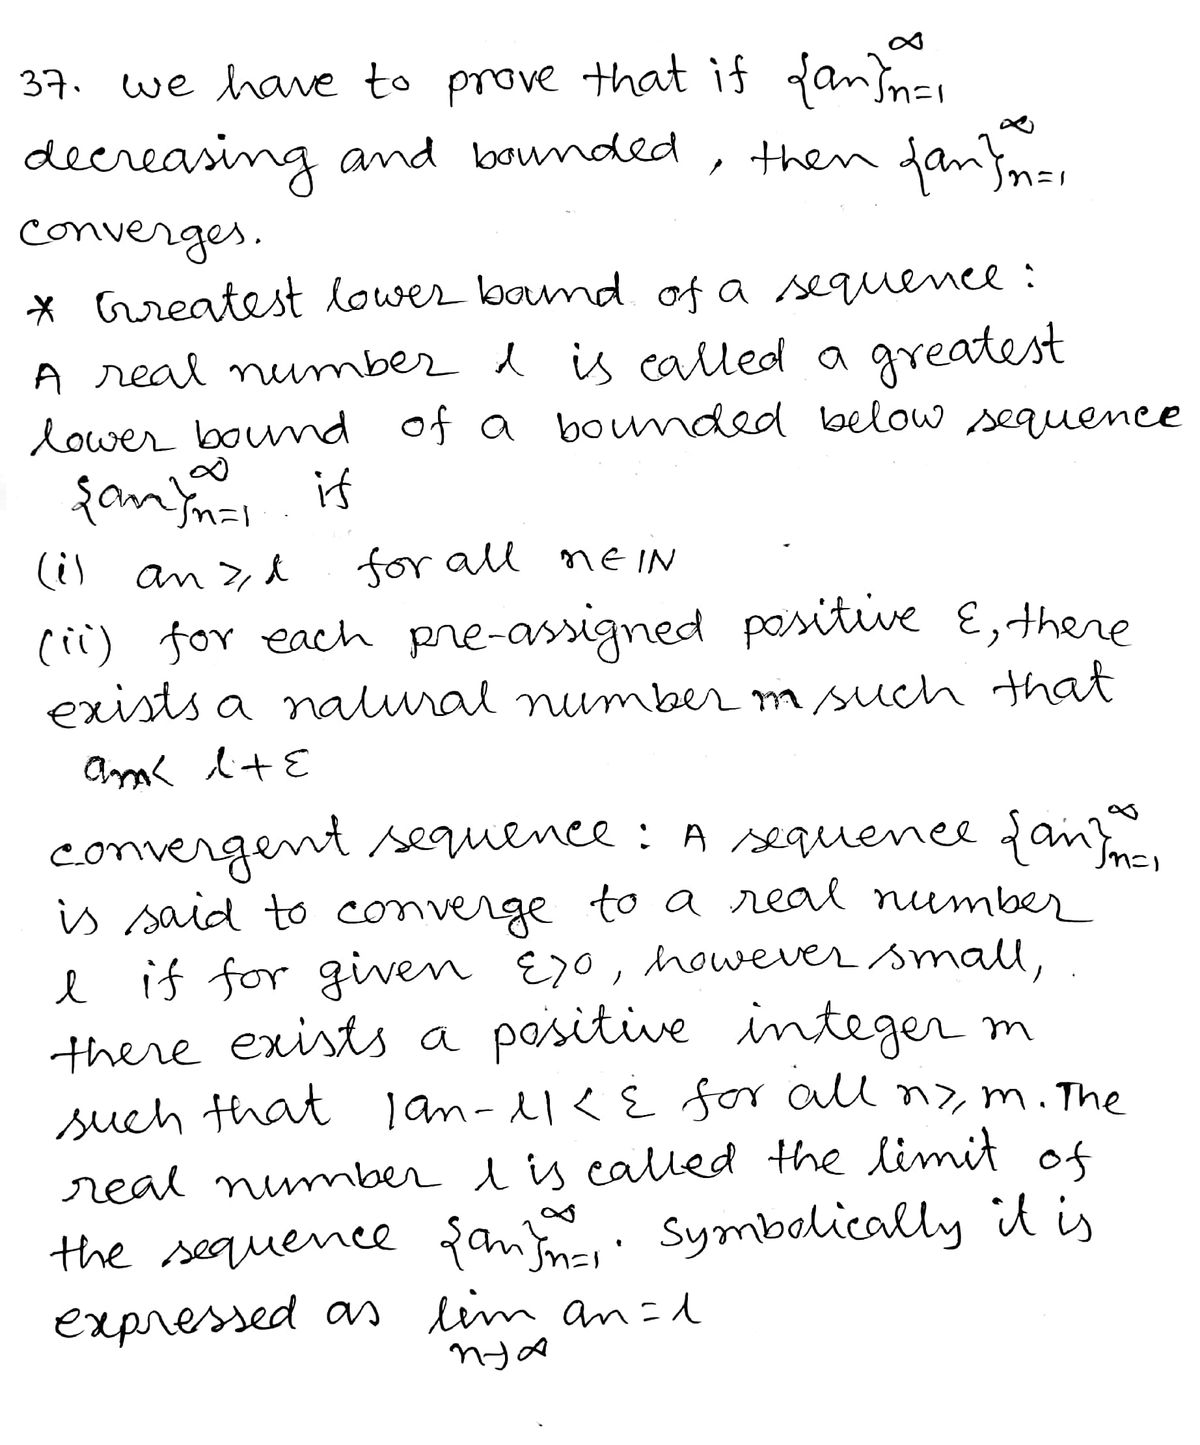 37. we have to prove that if {an}∞n=1
decreasing and bounded, then {an}∞n=1
converges.
* Greatest lower bound of a sequence:
A real number l is called a greatest
lower bound of a bounded below sequence
{an}∞n=1 if
(i) an ≥ l for all n∈IN
(ii) for each pre-assigned positive ε, there
exists a natural number m such that
am< l+ε
convergent sequence: A sequence {an}∞n=1
is said to converge to a real number
l if for given ε>0, however small,
there exists a positive integer m
such that |an-l| < ε for all n≥m. The
real number l is called the limit of
the sequence {an}∞n=1. Symbolically it is
expressed as lim an=l
n→∞